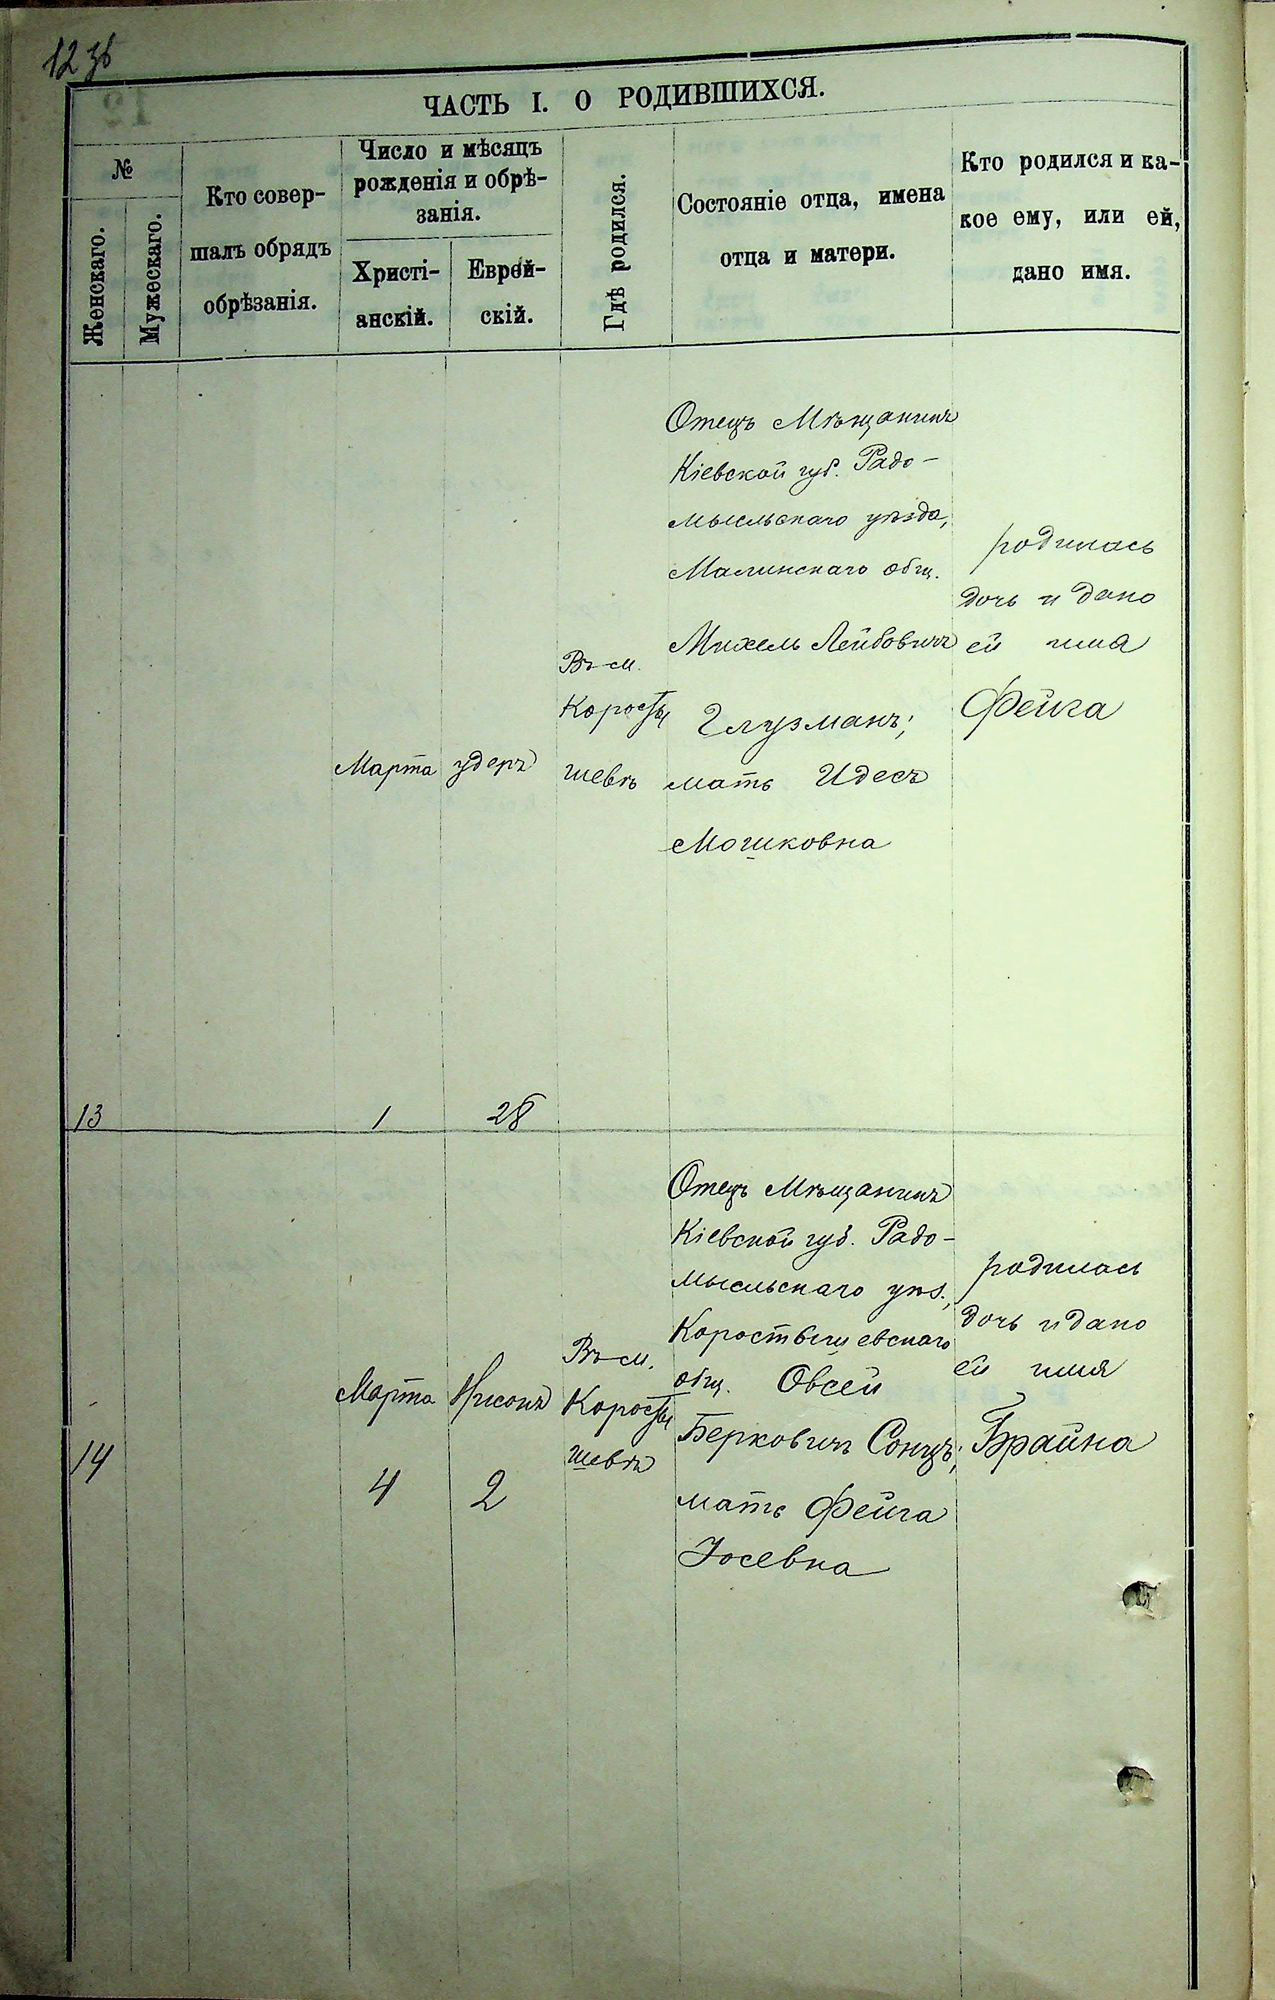 12 зв
ЧАСТЬ I. О РОДИВШИХСЯ.
№
Женскаго.
Мужескаго.
Кто совер-
шалъ обрядъ
обрѣзанія.
Число и мѣсяцъ
рожденія и обрѣ-
занія.
Христі-
анскій.
Еврей-
скій.
Гдѣ родился.
Состояніе отца, имена
отца и матери.
Кто родился и ка-
кое ему, или ей,
дано имя.
13
Марта
1
удеръ
28
Въ м.
Коросты
шевѣ
Отецъ Мѣщанинъ
Кіевской губ. Радо-
мысльскаго уѣзда,
Малинскаго общ.
Михель Лейбовичъ
Глузманъ;
мать Идесъ
Мошковна
родилась
дочь и дано
ей имя
Фейга
14
Марта
4
Нисонъ
2
Въ м.
Коросты
шевѣ
Отецъ Мѣщанинъ
Кіевской губ. Радо-
мысльскаго уѣз.,
Коростышевскаго
общ. Овсей
Берковичъ Сонцъ;
мать Фейга
Іосевна
родилась
дочь и дано
ей имя
Брайна